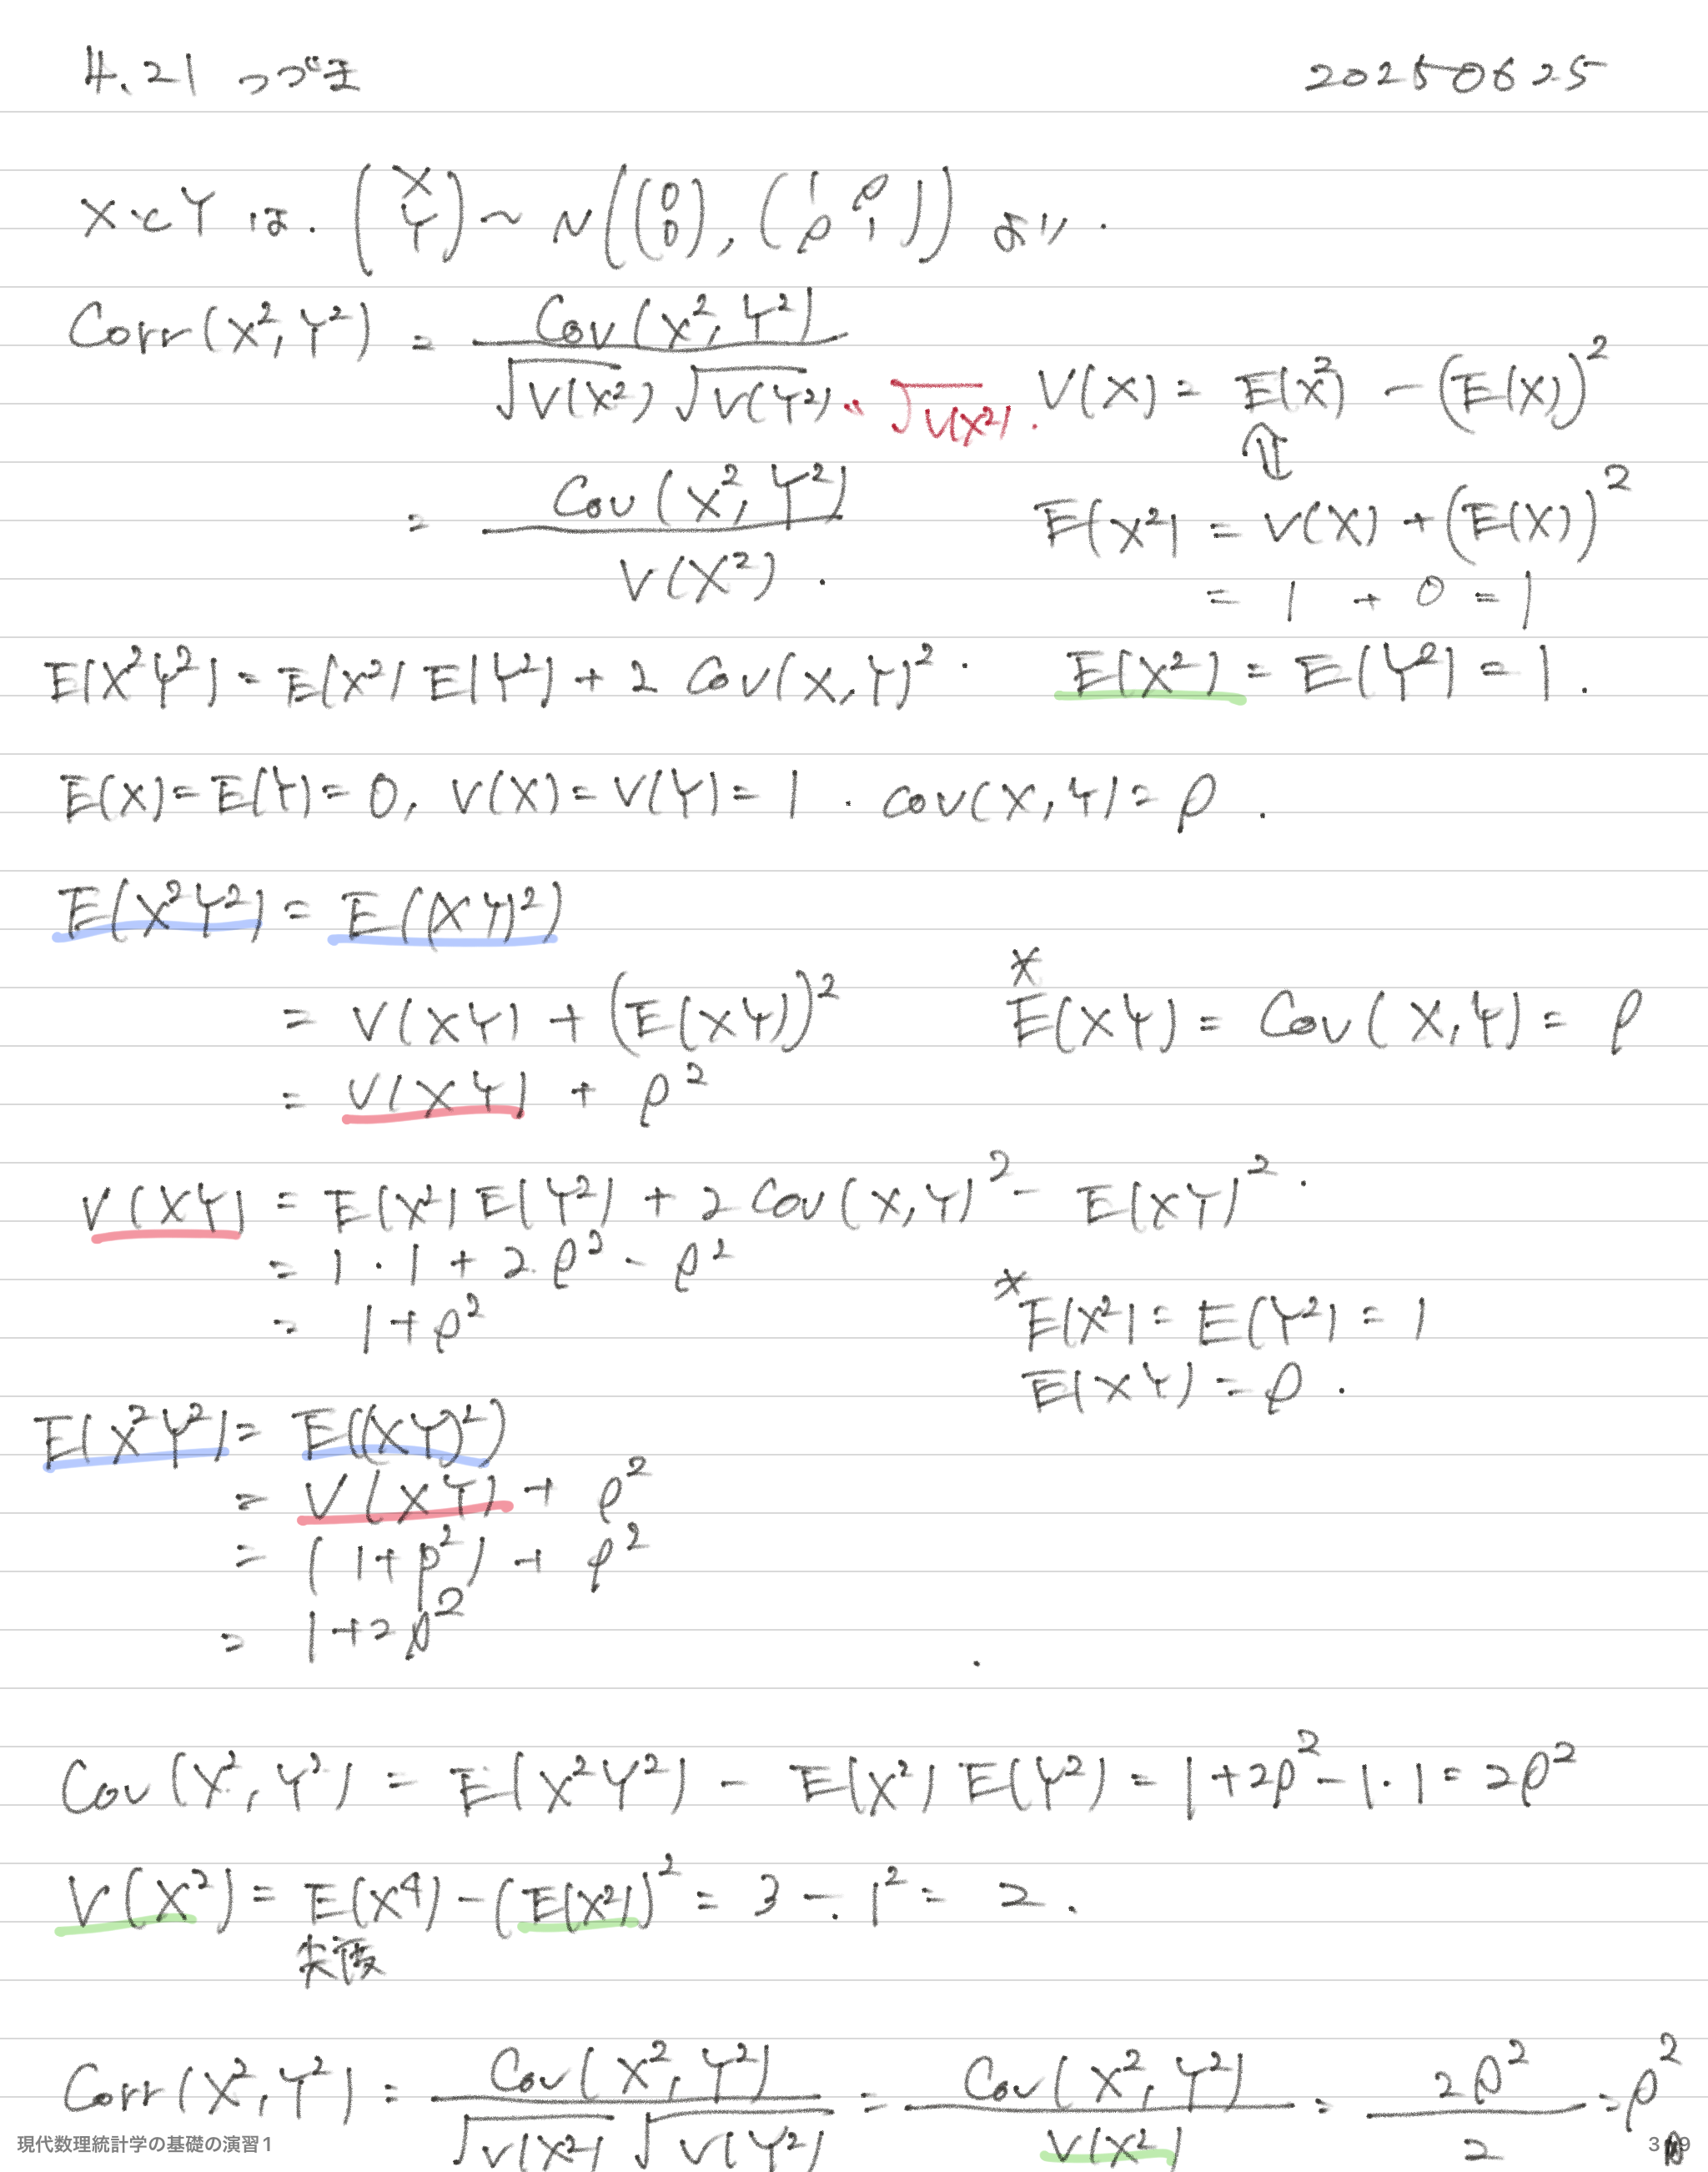 4.21 つづき 20250625
XとYは. (X Y) ~ N((0 0), (1 ρ ρ 1)) より.
Corr(X², Y²) = Cov(X², Y²) / √V(X²) √V(Y²) " √V(X²).
V(X) = E(X²) - (E(X))²
⇕
= Cov(X², Y²) / V(X²).
E(X²) = V(X) + (E(X))²
= 1 + 0 = 1
E(X²Y²) = E(X²) E(Y²) + 2 Cov(X, Y)². E(X²) = E(Y²) = 1.
E(X) = E(Y) = 0, V(X) = V(Y) = 1. cov(X, Y) = ρ.
E(X²Y²) = E((XY)²)
= V(XY) + (E(XY))² * E(XY) = Cov(X, Y) = ρ
= V(XY) + ρ²
V(XY) = E(X²) E(Y²) + 2 Cov(X, Y)² - E(XY)².
= 1・1 + 2ρ² - ρ²
= 1 + ρ² * E(X²) = E(Y²) = 1
E(XY) = ρ.
E(X²Y²) = E((XY)²)
= V(XY) + ρ²
= (1+ρ²) + ρ²
= 1+2ρ²
Cov(X², Y²) = E(X²Y²) - E(X²) E(Y²) = 1+2ρ² - 1・1 = 2ρ²
V(X²) = E(X⁴) - (E(X²))² = 3 - 1² = 2.
尖度
Corr(X², Y²) = Cov(X², Y²) / √V(X²) √V(Y²) = Cov(X², Y²) / V(X²) = 2ρ² / 2 = ρ²
現代数理統計学の基礎の演習1